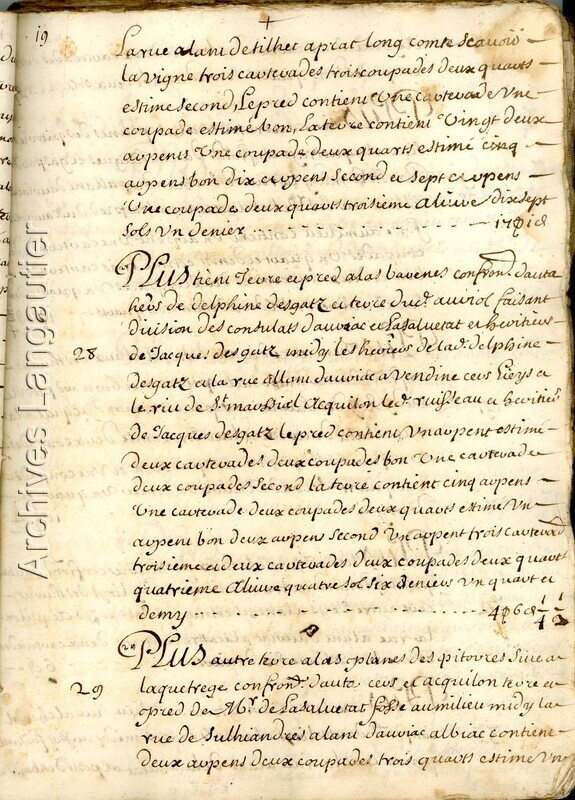 19
La rue alant de tilhet a prat long comte scavoir
la vigne trois carterades trois coupades deux quarts
estime second, Le pred contient Une carterade Une
coupade estimé bon, La terre contient Vingt deux
arpents Une coupade deux quarts estimé cinq
arpens bon dix arpens second et sept arpens
Une coupade deux quarts troisieme alivre dix sept
sols Un denier 17 1
PLUS tient terre et pred a las bavenes confron. d'auta
de delphine desgatz et terre du d. auriol faisant
division des consulats dauriac et Lasalvetat et heritiers
28
de Jacques desgatz midy les heritiers de lad. delphine
desgatz et la rue allant dauriac a Vendine cers
le riu de St. marsial Acquilon led. ruisseau et heritiers
de Jacques desgatz le pred contient, Un arpent estimé
deux carterades deux coupades bon Une carterade
deux coupades second la terre contient cinq arpens
Une carterade deux coupades deux quarts estime Un
arpent bon deux arpens second Un arpent trois carterad
troisieme et deux carterades deux coupades deux quarts
quatrieme Alivre quatre sol six deniers Un quart et
demy 4 6 1/4 1/2
29
PLUS autre terre a las planes des pitorres sive a
29
laquetrege confron. dauta cers et acquilon terre et
pred de Mr. de Lasalvetat fosse au milieu midy la
rue de Sulhiandres alant dauriac albiac contient
deux arpens deux coupades trois quarts estime Un
Archives Langautier